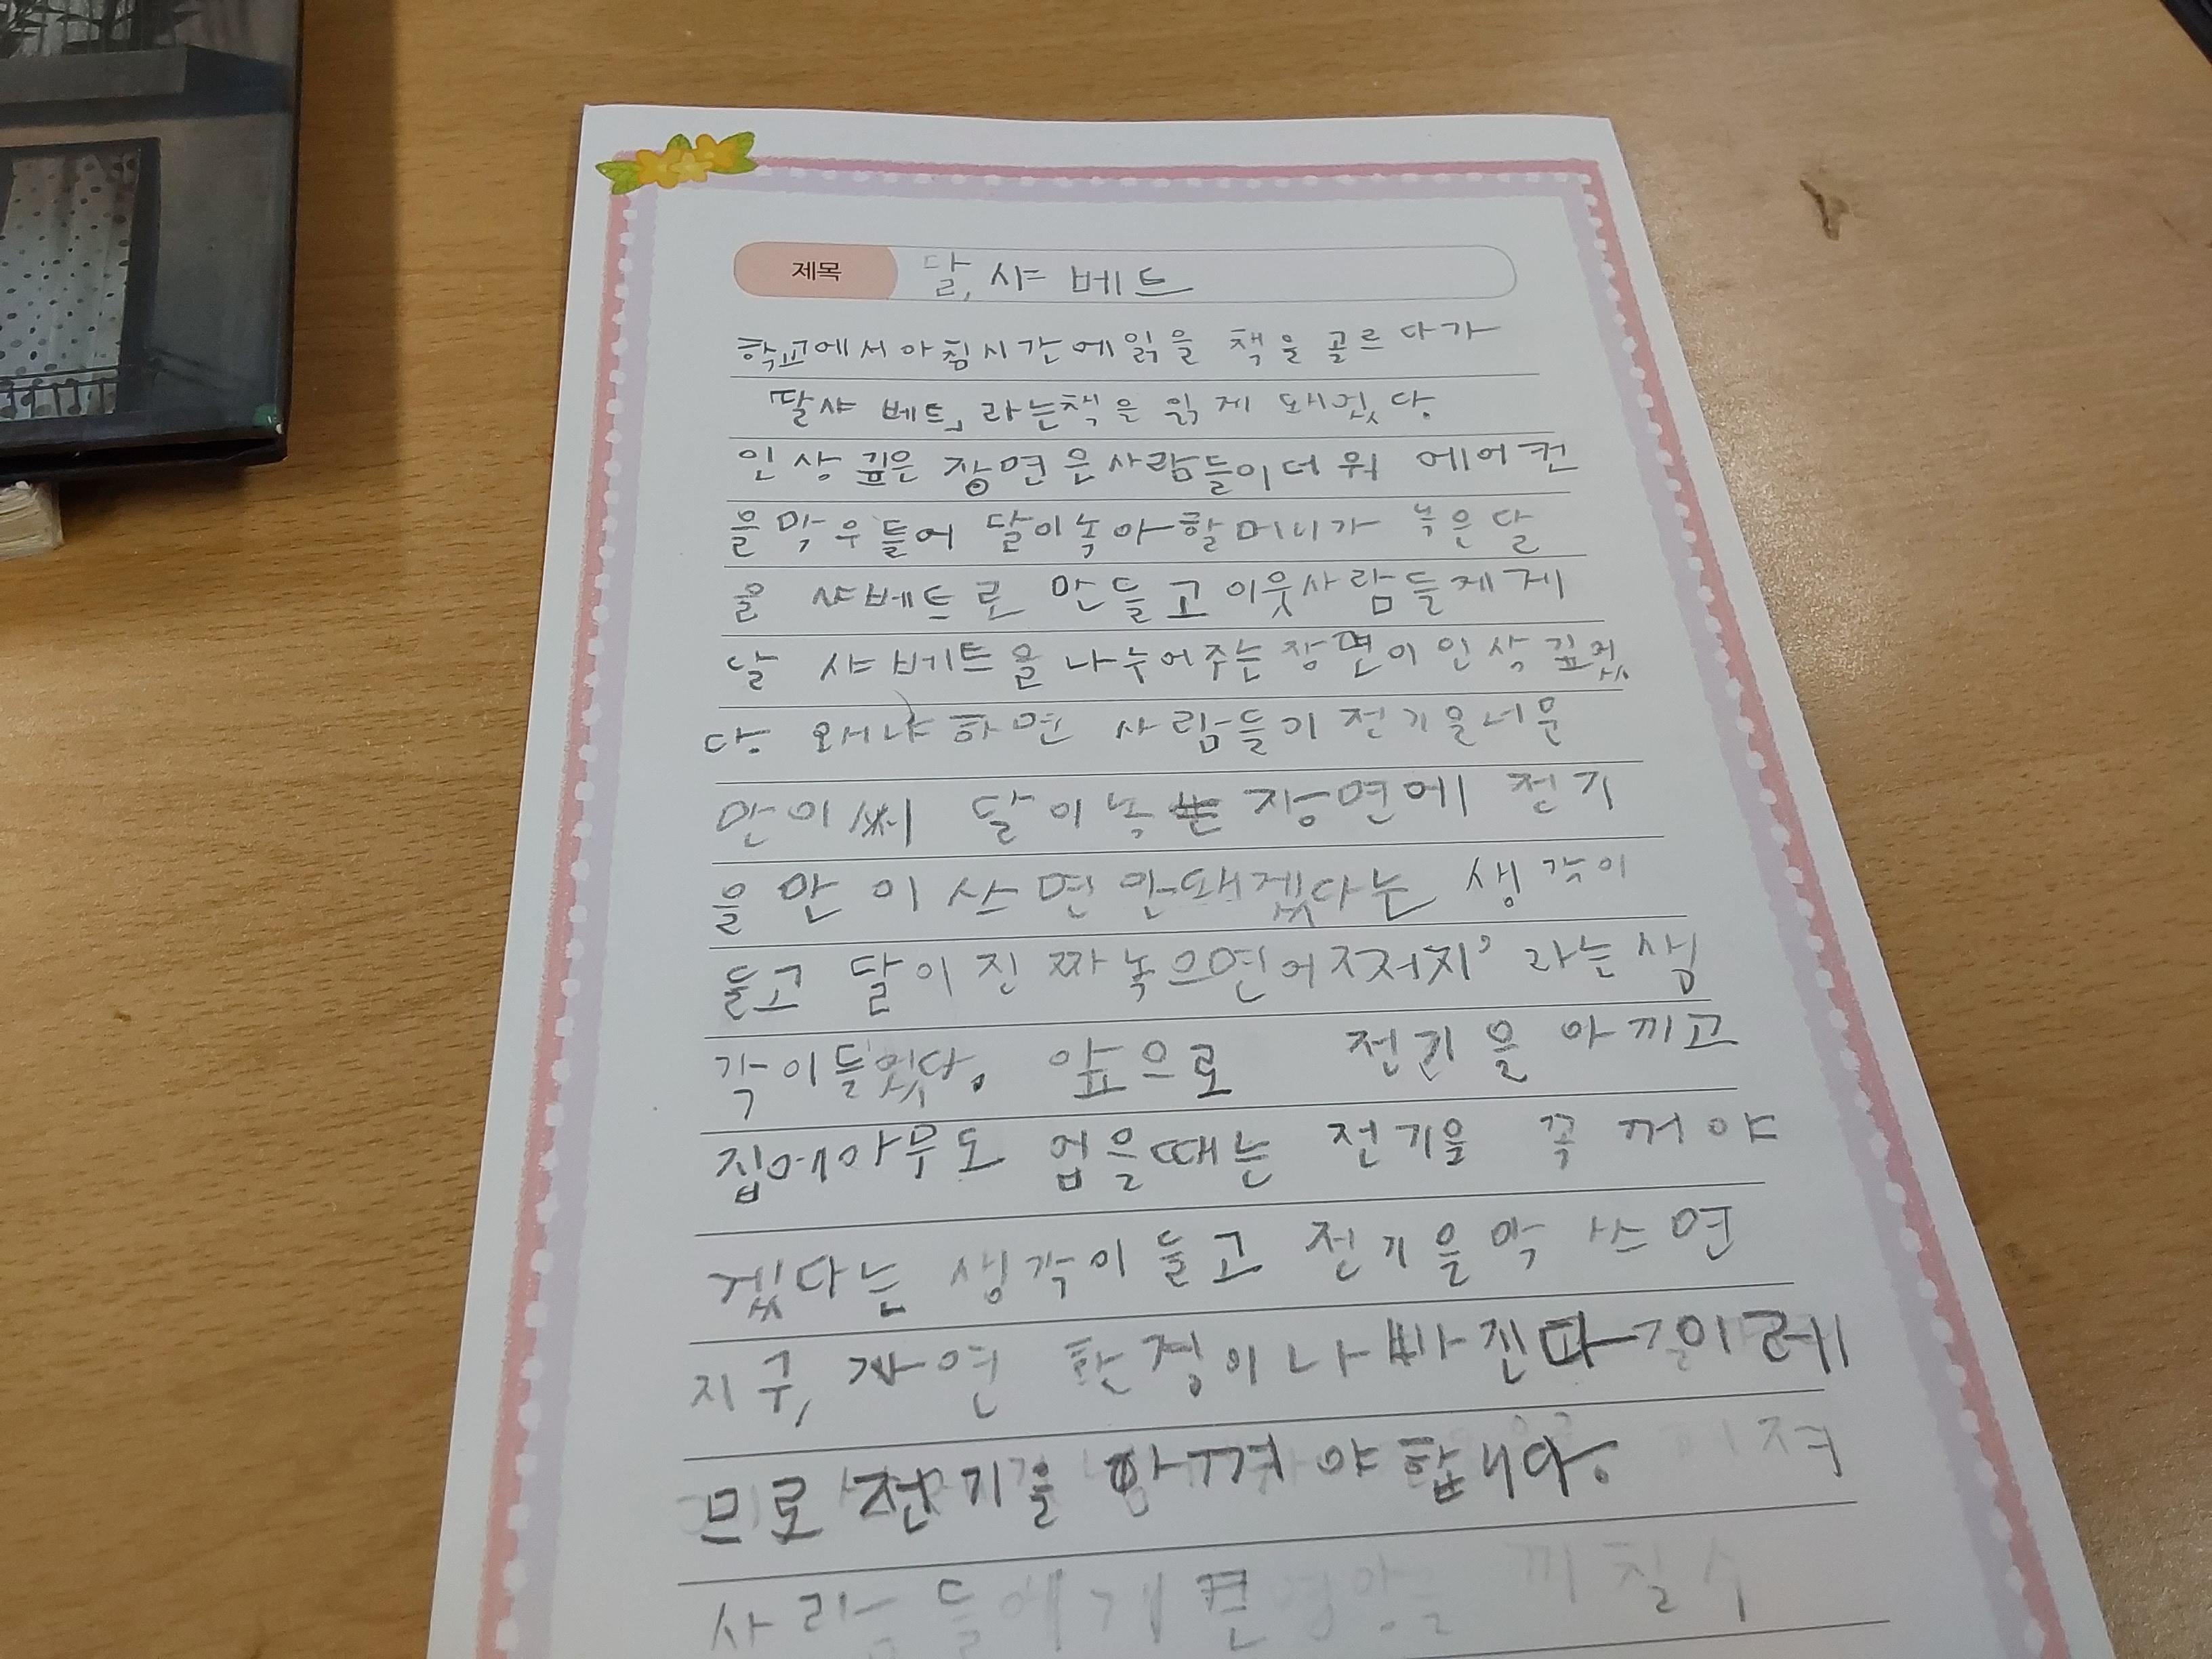 제목 달 샤 베트
학교에서 아침시간에 읽을 책을 골르다가
달샤 베트」라는책을 읽게 돼었다.
인상 깊은 장면은 사람들이 더워 에어컨
을 막 우 틀어 달이 녹아 할머니가 녹은 달
을 샤베트로 만들고 이웃사람들게게
달 샤베트을 나누어주는 장면이 인상 깊었
다. 왜냐하면 사람들이 전기을 너무
만이 써 달이 녹는 장면에 전기
을 만이 쓰면 안돼겠다는 생각이
들고 달이 진짜 녹으면 어쩌지' 라는 생
각이 들었다. 앞으로 전기을 아끼고
집에 아무도 업을때는 전기을 꼭 꺼야
겠다는 생각이 들고 전기을 막 쓰면
지구, 자연 환경이 나빠진다
므로 전기을 아껴야 합니다.
사람들에게 큰 영향을 끼칠 수